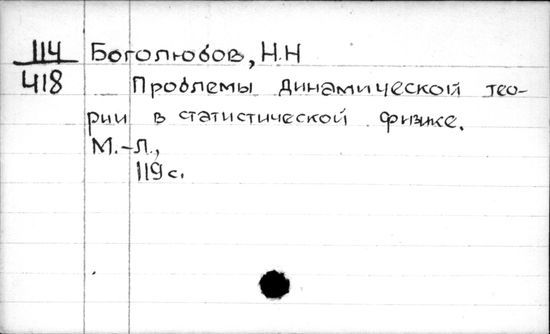 114 Боголюбов, Н.Н
418 Проблемы динамической тео-
рии в статистической физике.
М.-Л.,
119 с.